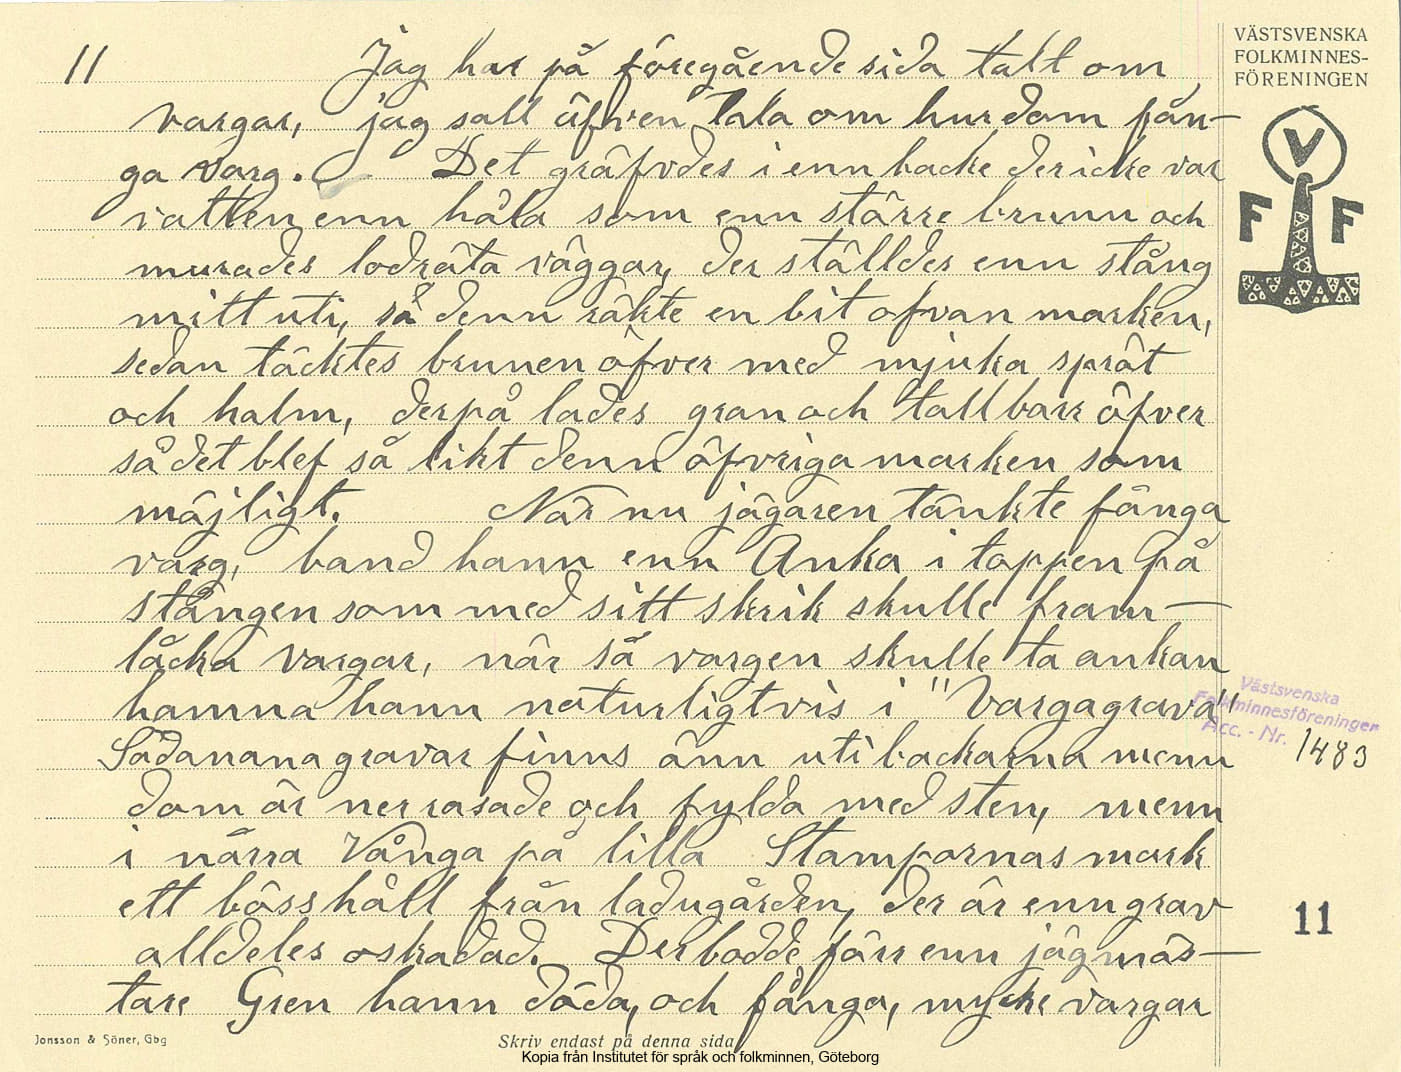 11
Jag har på föregående sida talt om
vargar, jag sall äfven tala om hur dom fån-
ga varg. Det gräfvdes i enn backe der icke var
vatten enn håla som enn större brunn och
murades lodräta väggar, der ställdes enn stång
mitt uti, så denn räkte en bit ofvan marken,
sedan täcktes brunen öfver med mjuka spröt
och halm, derpå lades gran och tallbarr öfver
så det blef så likt denn öfvriga marken som
möjligt. När nu jägaren tänkte fånga
varg, band hann enn Anka i toppen på
stången som med sitt skrik skulle fram-
låcka vargar, när så vargen skulle ta ankan
hamna hann naturligtvis i "Vargagrava"
Sådanana gravar finns änn uti backarna menn
dom är ner rasade och fylda med sten, menn
i närra Vånga på lilla Stampornas mark
ett bösshåll från ladugården, der är enn grav
alldeles oskadad. Der bodde förr enn jägmäs-
tare Gren hann döda, och fånga, mycke vargar
VÄSTSVENSKA
FOLKMINNES-
FÖRENINGEN
V
F F
Västsvenska
Folkminnesföreningen
Acc. - Nr. 1483
11
Jonsson & Söner, Gbg
Skriv endast på denna sida
Kopia från Institutet för språk och folkminnen, Göteborg